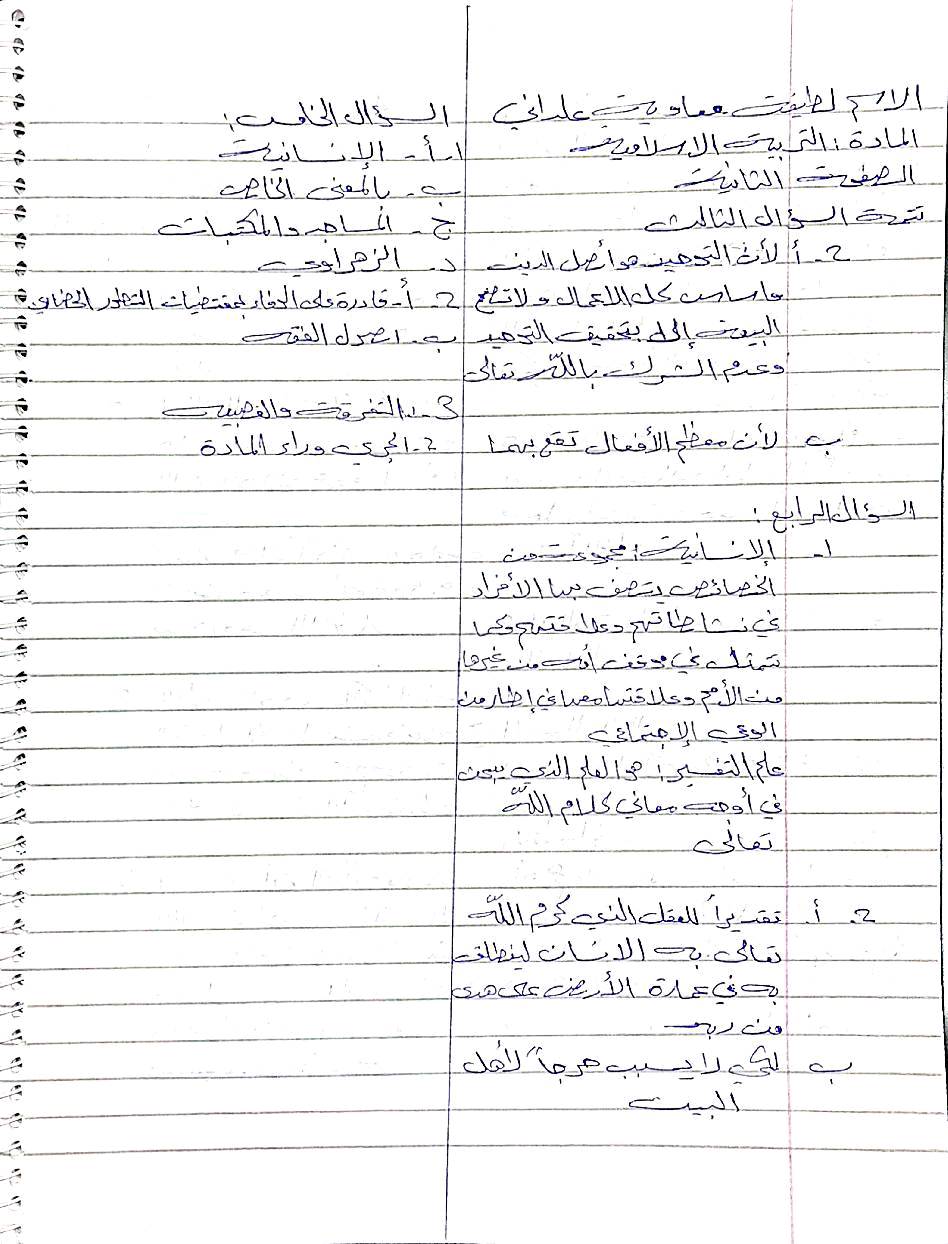 الاسم لطيفة معاوية علداني
المادة: التربية الاسلامية
الصفحة الثانية
تتمة السؤال الثالث
2- أ لأن التوحيد هو أصل الدين
واساس كل الاعمال ولا تصح
البيعة إلا بتحقيق التوحيد
وعدم الشرك بالله تعالى
ب لأن معظم الأفعال تقع بهما
السؤال الرابع:
1- الإنسانية: مجموعة من
الخصائص يتصف بها الأفراد
في نشاطاتهم وعلاقتهم وكما
تتمثل في موقف أمة من غيرها
من الأمم وعلاقتها معها في إطار من
الوعي الإجتماعي
علم التفسير: هو العلم الذي يبحث
في أوجه معاني كلام الله
تعالى
2. أ. تقديراً للعقل الذي كرم الله
تعالى به الانسان لينطلق
به في عمارة الأرض على هدى
من ربه
ب لكي لا يسبب حرجاً لأهل
البيت
السؤال الخامس:
1- أ- الإنسانية
ب- بالمعنى الخاص
ج- المساجد والمكتبات
د- الزهراوي
2- أ- قادرة على الوفاء بمقتضيات التطور الحضاري
ب- اصول الفقه
3- 1. التفرقة والعصبية
2- الجري وراء المادة